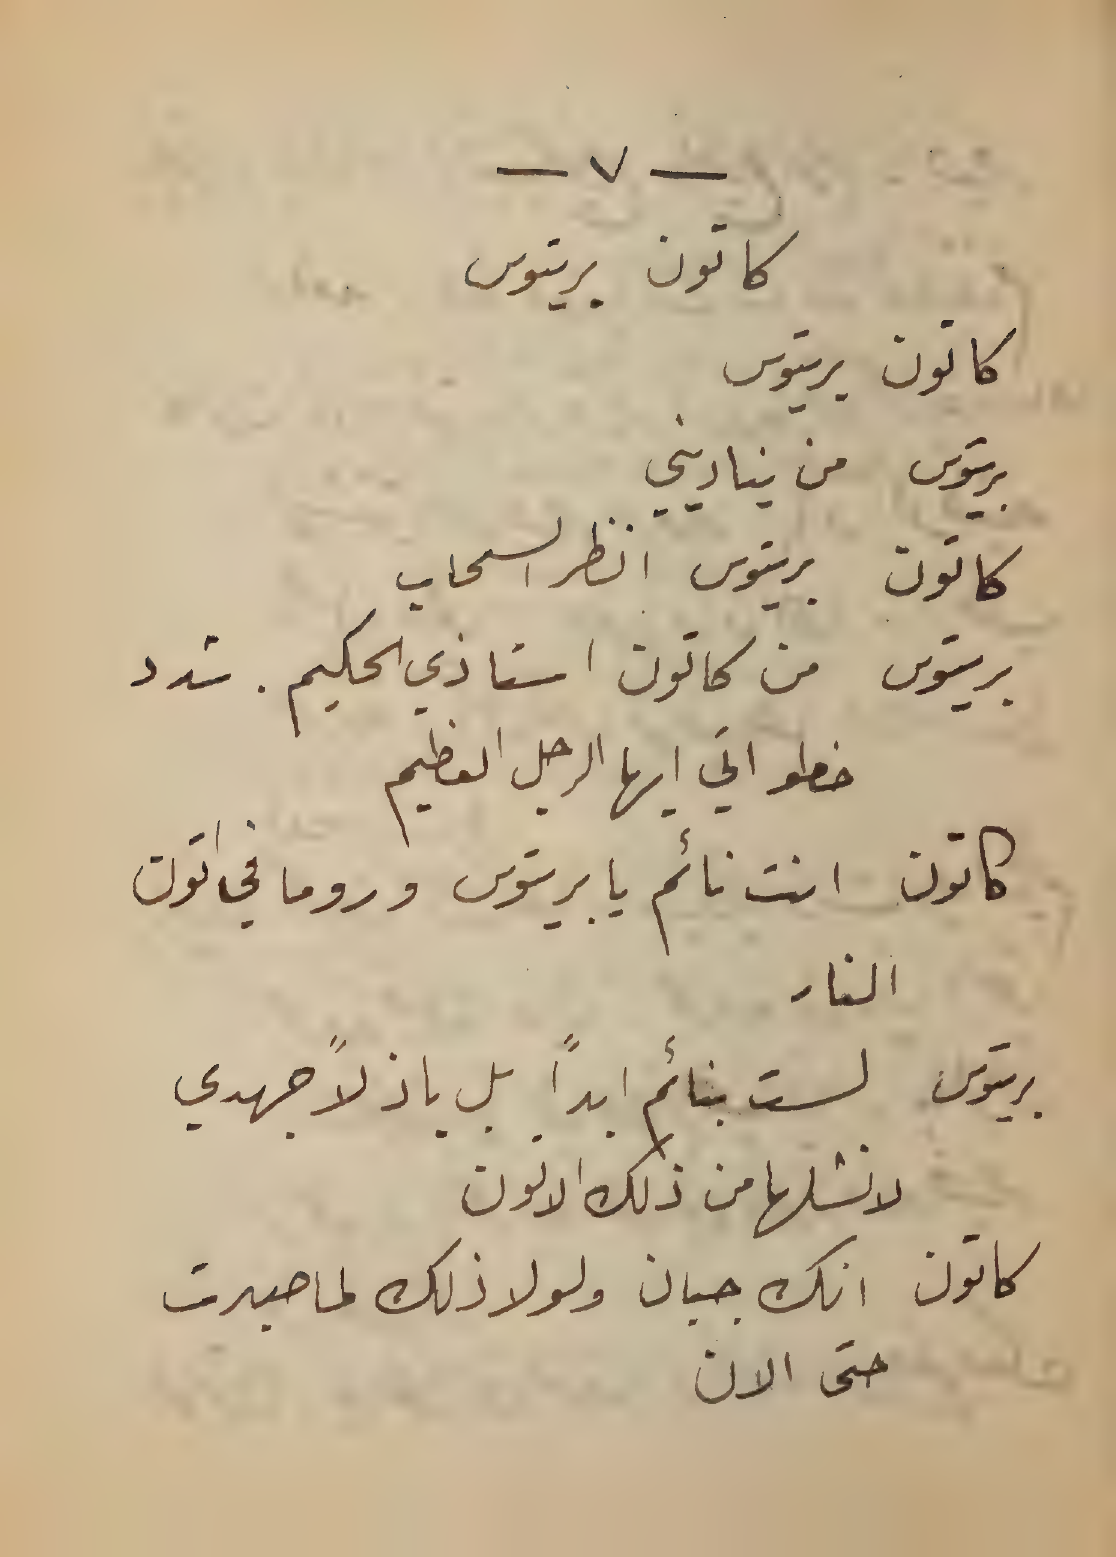 — ٧ —
كاتون بريتوس
كاتون بريتوس
بريتوس من يناديني
كاتون بريتوس انظر السحاب
بريتوس من كاتون استاذي الحكيم . شدد
خطواتي ايها الرجل العظيم
كاتون انت نائم يا بريتوس وروما في اتون
النار
بريتوس لست بنائم ابداً بل باذلاً جهدي
لانشلها من ذلك الاتون
كاتون انك جبان ولولا ذلك لما صبرت
حتى الان